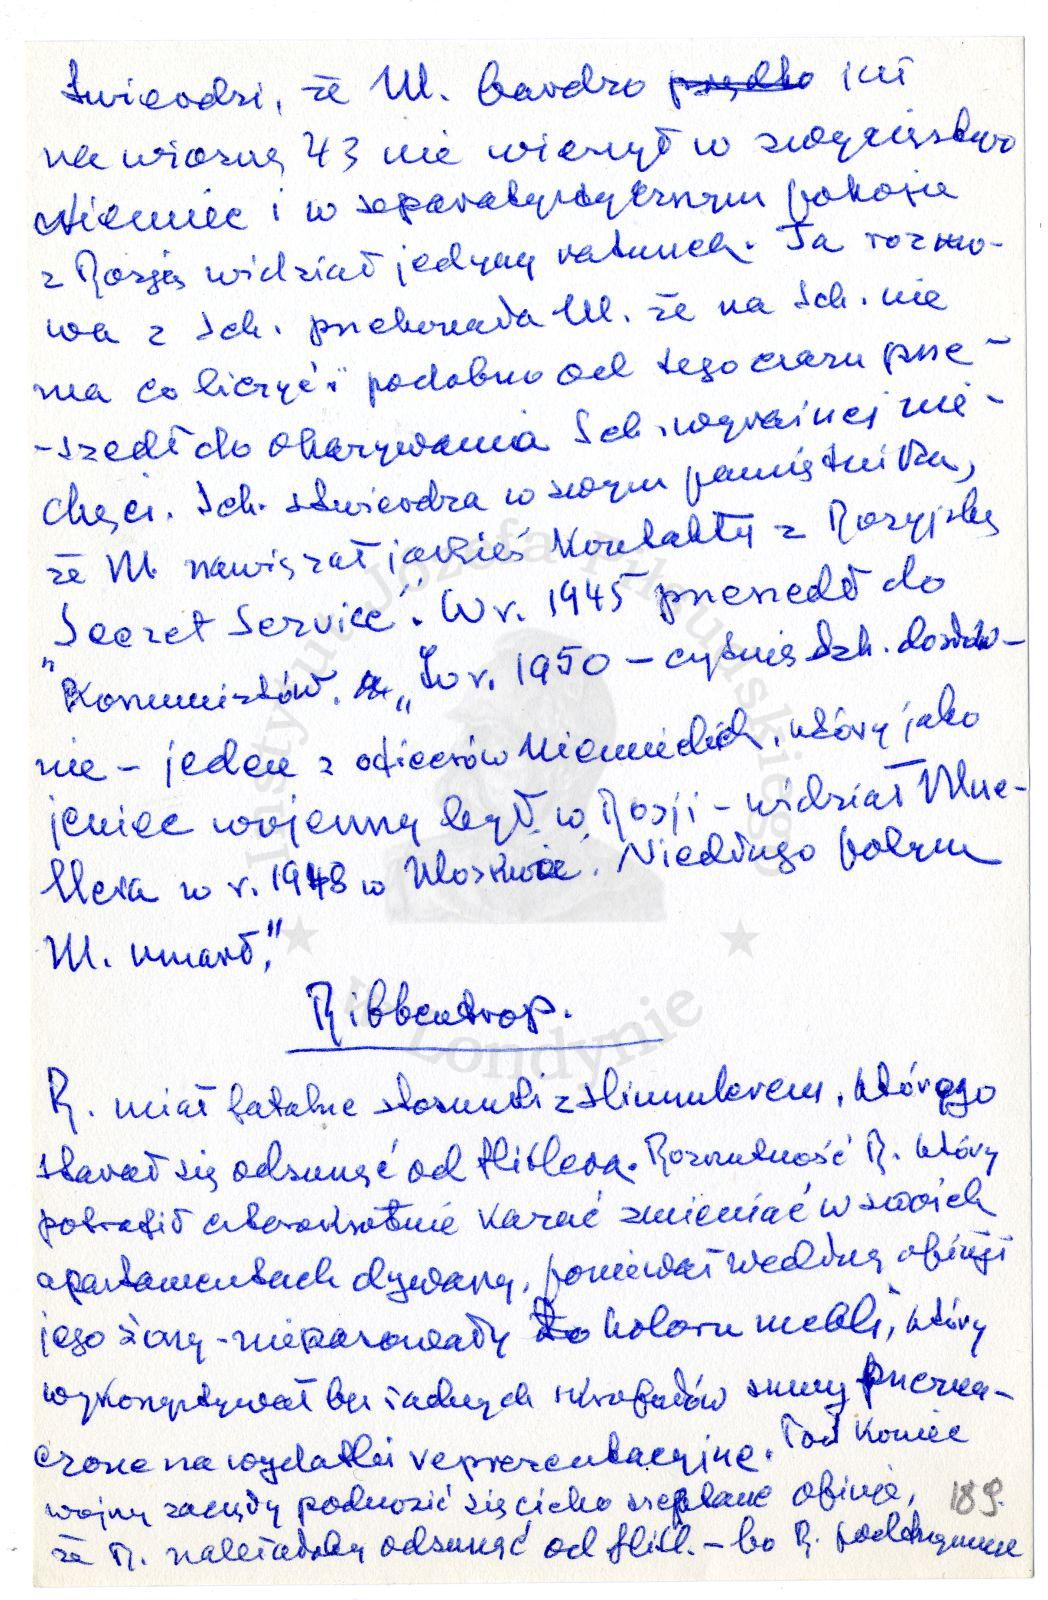 twierdzi, że M. bardzo prędko już
na wiosnę 43 nie wierzył w zwycięstwo
Niemiec i w separatystycznym pokoju
z Rosją widział jedyny ratunek. Ta rozmo-
wa z Sch. przekonała M. że na Sch. nie
ma co liczyć i podobno od tego czasu prze-
-szedł do okazywania Sch. wyraźnej nie-
chęci. Sch. stwierdza w swym pamiętniku,
że M. nawiązał jakieś kontakty z Rosyjską
"Secret Service". W r. 1945 przeszedł do
Komunistów. „W r. 1950 – cytuję Sch. dosłow-
nie – jeden z oficerów niemieckich, który jako
jeniec wojenny był w Rosji – widział Mue-
llera w r. 1948 w Moskwie. Niedługo potym
M. umarł."
Ribbentrop.
R. miał fatalne stosunki z Himmlerem, którego
starał się odsunąć od Hitlera. Rozrzutność R. który
potrafił czterokrotnie kazać zmieniać w swoich
apartamentach dywany, ponieważ według opinji
jego żony – nie pasowały do koloru mebli, który
wykorzystywał bez żadnych skrupułów sumy przezna-
czone na wydatki reprezentacyjne. Pod koniec
wojny zaczęły podnosić się cicho szeptane opinie,
że R. należałoby odsunąć od Hitl. – bo R. podtrzymuje
189.
Instytut Józefa Piłsudskiego
w Londynie